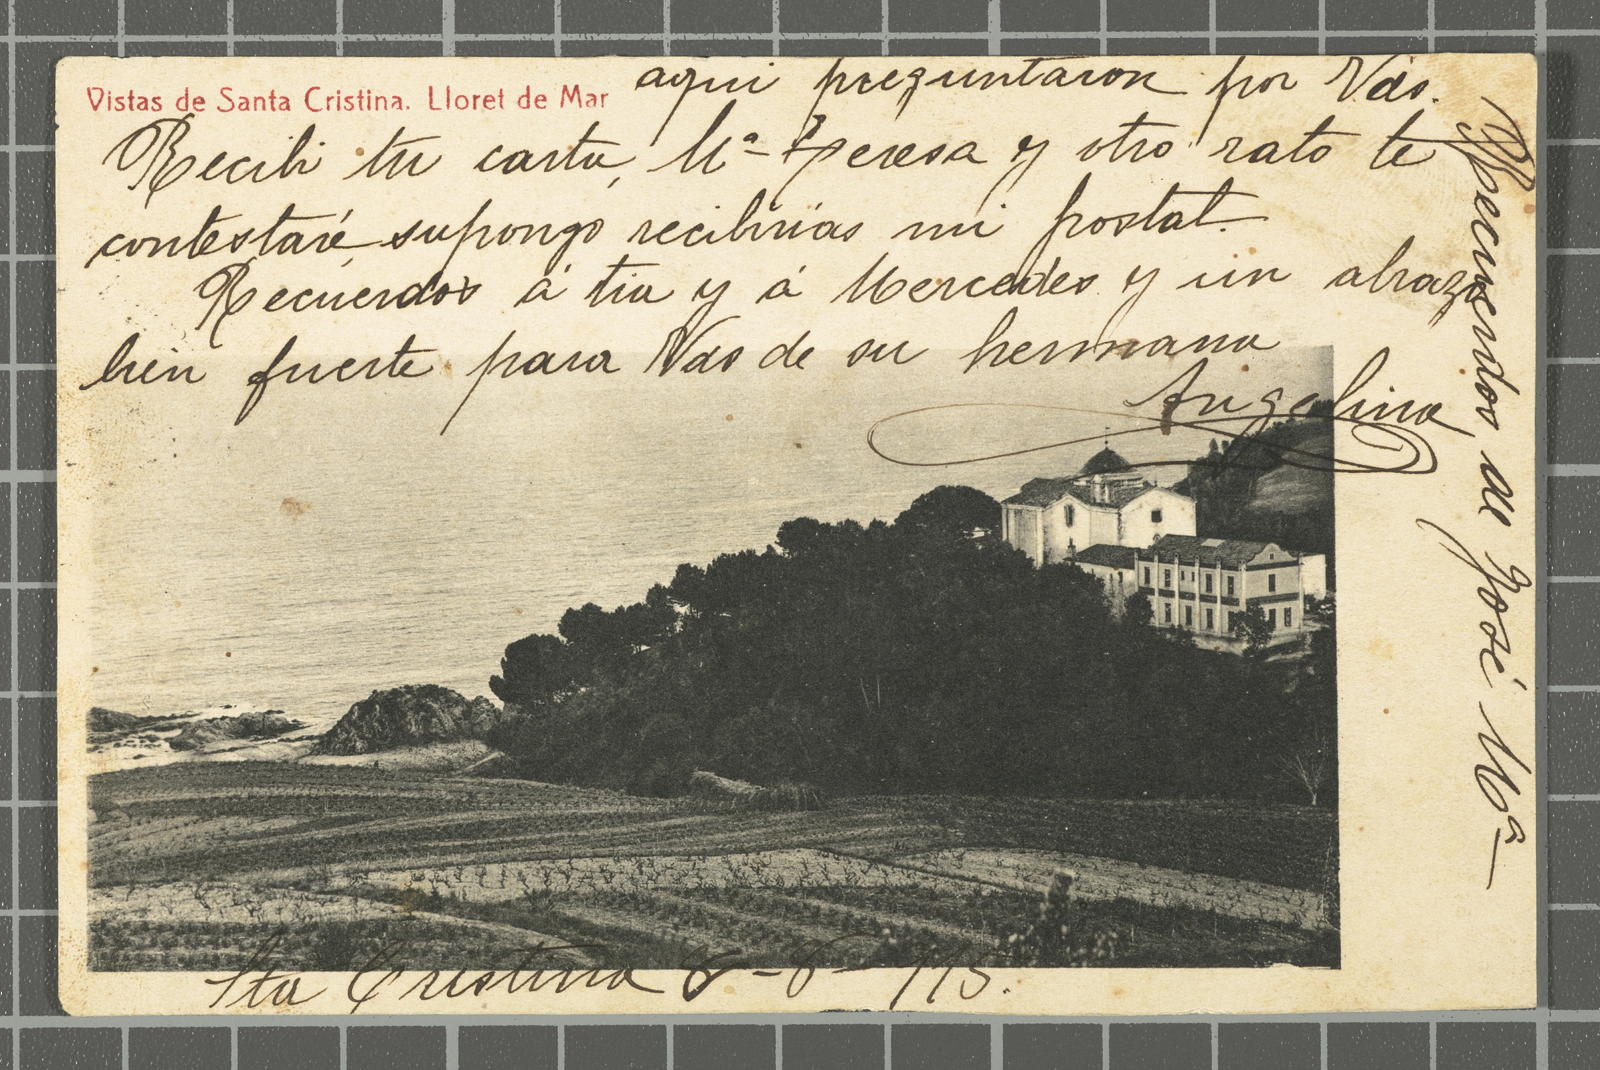 Vistas de Santa Cristina. Lloret de Mar
aqui preguntaron por Vds.
Recibi tu carta, Mª Teresa y otro rato te
contestaré, supongo recibirias mi postal.
Recuerdos á tia y á Mercedes y un abrazo
bien fuerte para Vds de su hermana
Angelina
Recuerdos de José Mª
Sta Cristina 8-8-